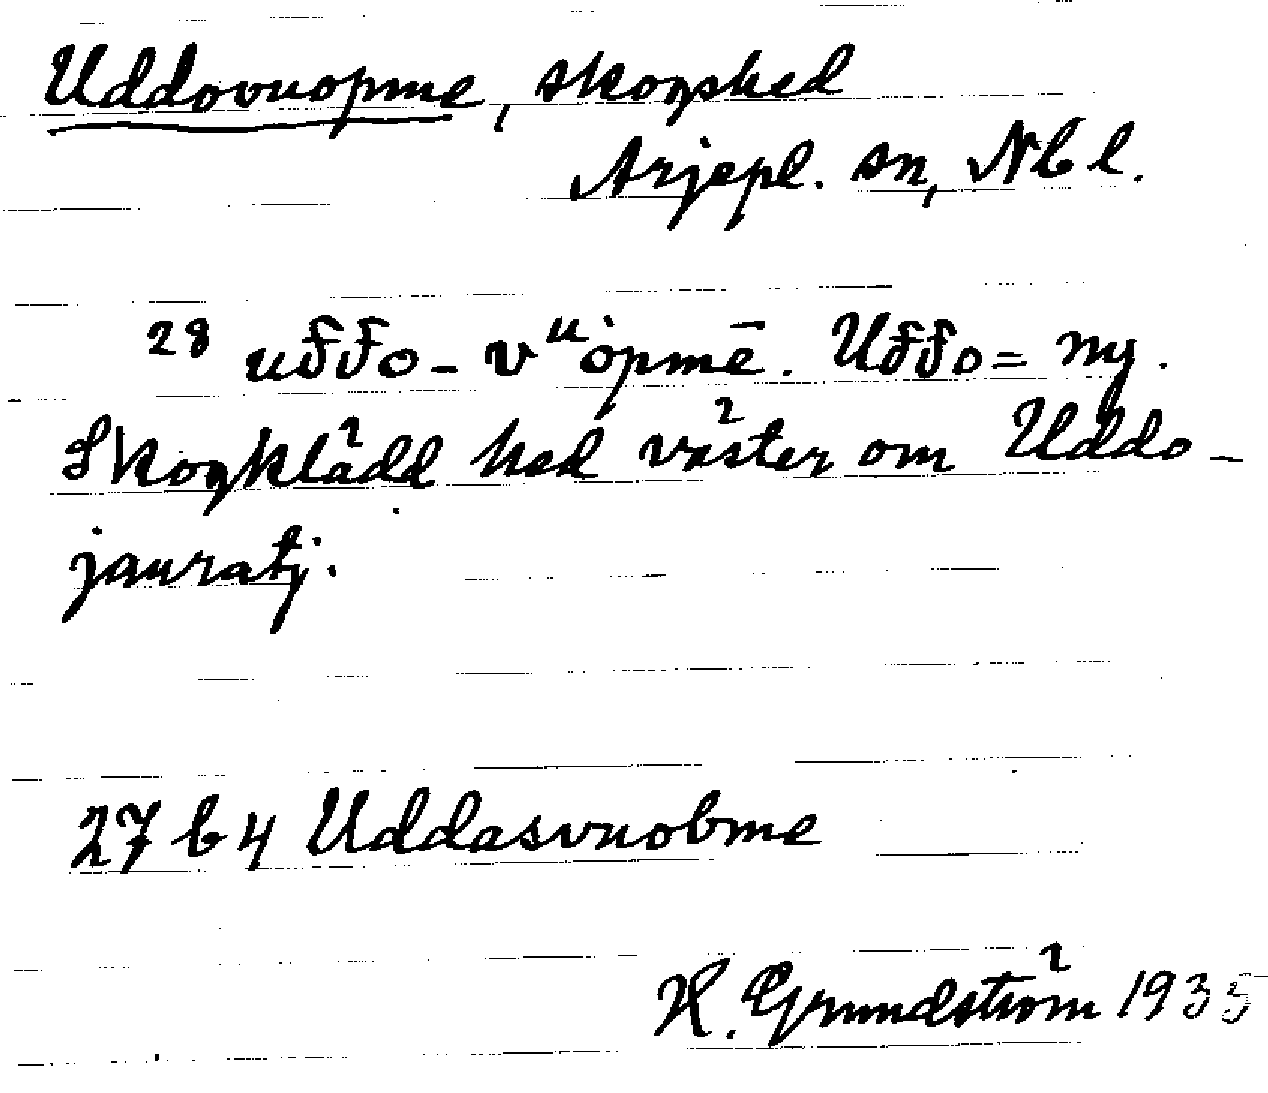 Uddovuopme, skogshed
Arjepl. sn, Nbl.
28 uđđo-vᵘȯpmē. Uđđo = ny.
Skogklädd hed väster om Uddo-
jauratj.
27 b 4 Uddasvuobme
H. Grundström 1935